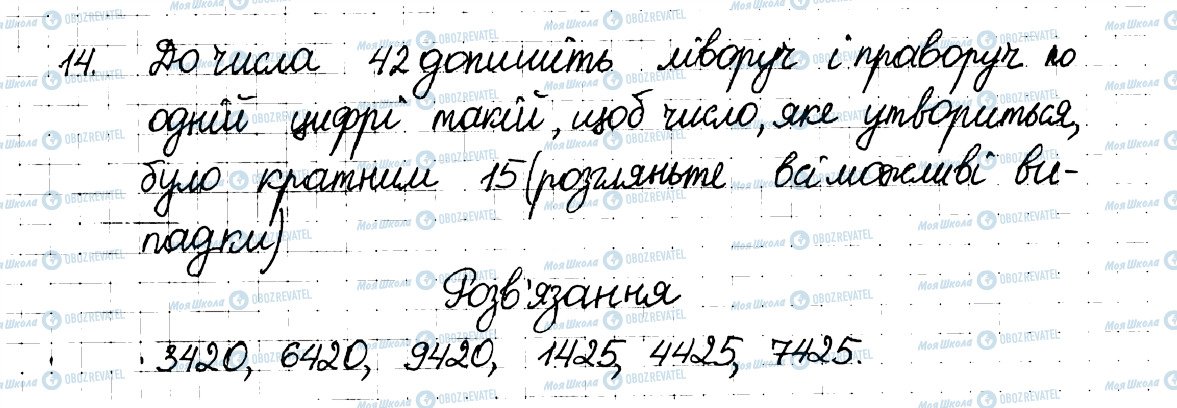 14. До числа 42 допишіть ліворуч і праворуч по
одній цифрі такій, щоб число, яке утвориться,
було кратним 15 (розгляньте всі можливі ви-
падки)
Розв'язання
3420, 6420, 9420, 1425, 4425, 7425.